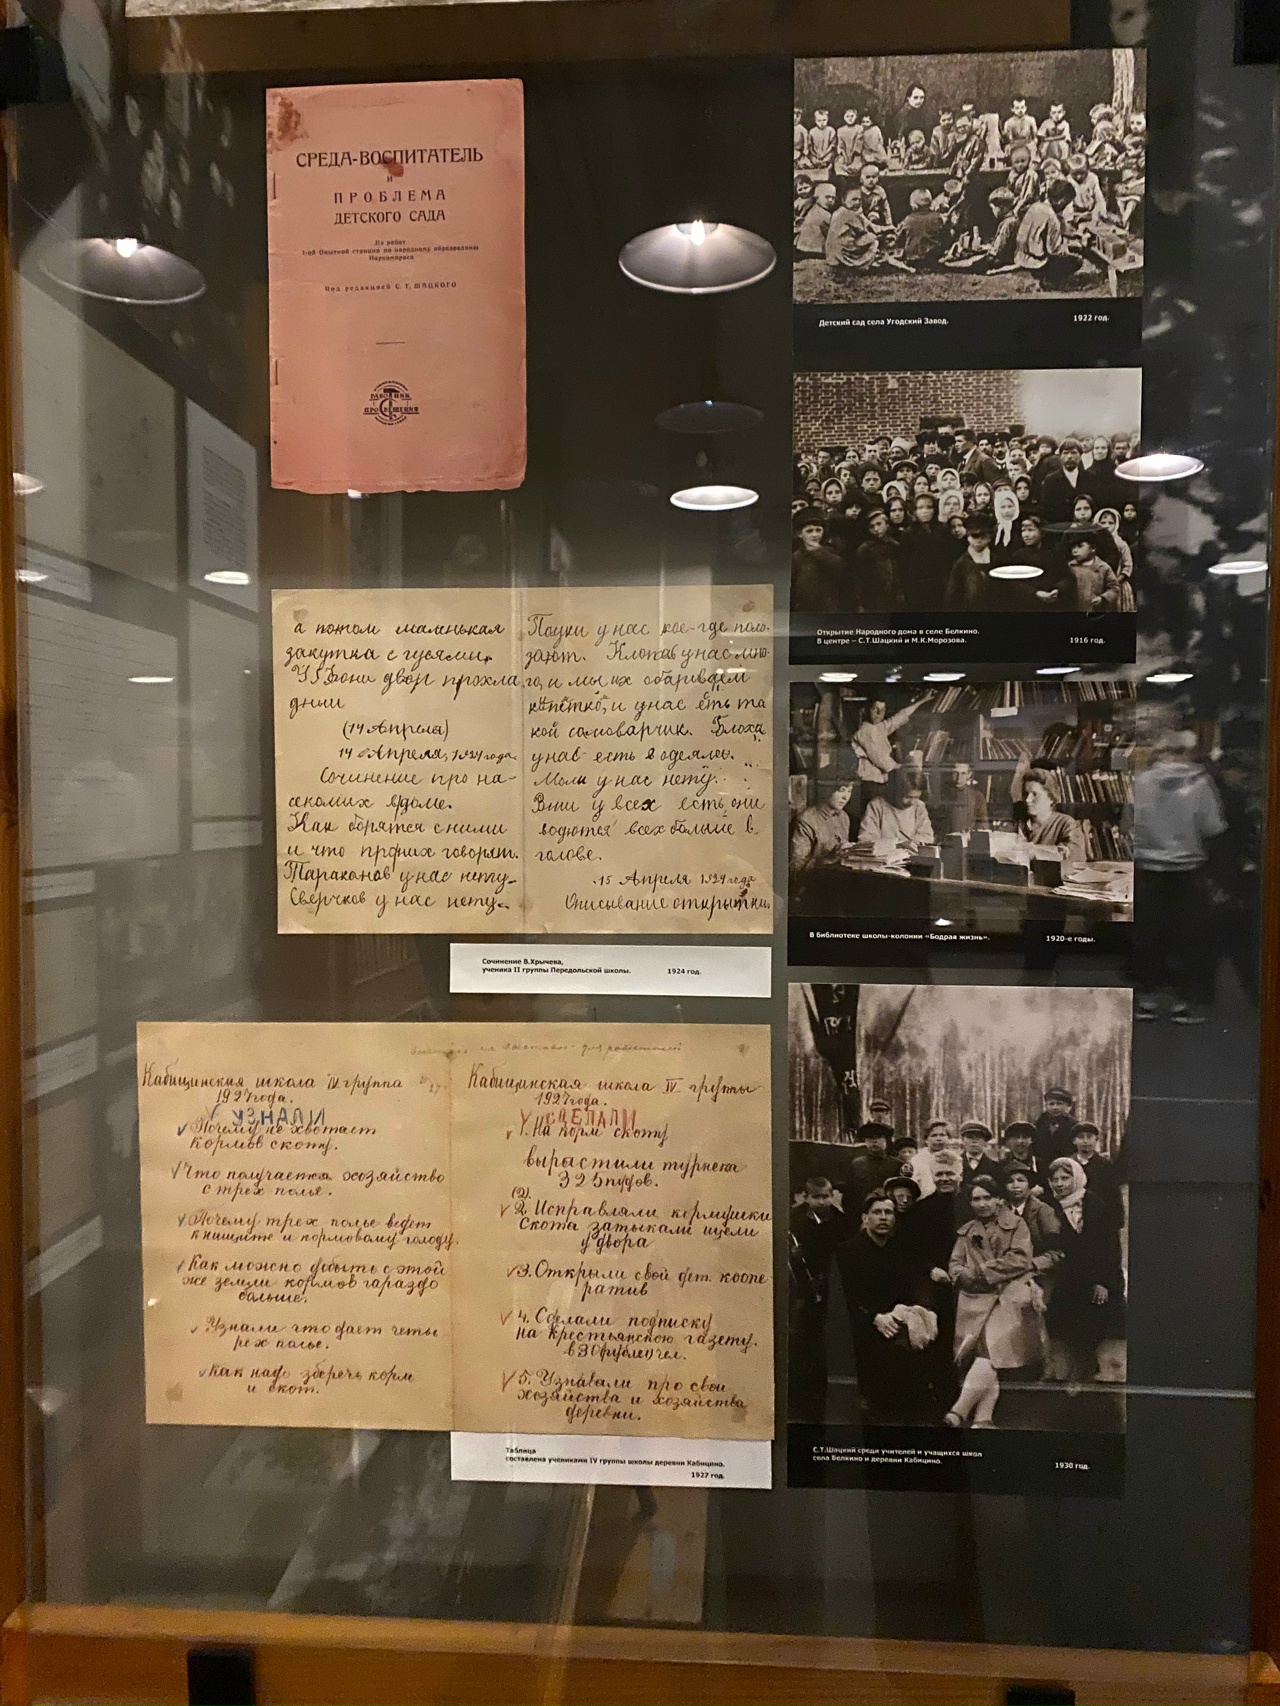 СРЕДА-ВОСПИТАТЕЛЬ
И
ПРОБЛЕМА
ДЕТСКОГО САДА
Из работ
1-ой Опытной станции по народному образованию
Наркомпроса
Под редакцией С. Т. ШАЦКОГО
РАБОТНИК
ПРОСВЕЩЕНИЯ
Детский сад села Угодский Завод. 1922 год.
Открытие Народного дома в селе Белкино.
В центре – С.Т.Шацкий и М.К.Морозова. 1916 год.
а потом маленькая
закутка с гусями.
двор прохла
дный
(14 Апреля)
14 Апреля, 1924 года.
Сочинение про на-
секомих вдоме.
Как борятся с ними
и что проних говорят.
Тараканов у нас нету.
Сверчков у нас нету.
Пауки у нас кое-где поло-
зают. Клопов у нас мно-
го, и мы их обариваем
и у нас есть та
кой самоварчик. Блохи
унас есть в одеяле.
Моли у нас нету.
Вши у всех есть они
водются всех больше в
голове.
15 Апреля 1924 года
Описывание открытки.
Сочинение В.Хрычева,
ученика II группы Передольской школы. 1924 год.
В библиотеке школы-колонии «Бодрая жизнь». 1920-е годы.
Кабицинская школа IV группа
1927 года.
УЗНАЛИ
Почему не хватает
кормов скоту.
Что получается хозяйство
с трех полье.
Почему трех полье ведет
к нищите и кормовому голоду.
Как можно добыть с этой
же земли кормов гараздо
больше.
Узнали что дает четы
рех полье.
Как надо зберечь корм
и скот.
Кабицинская школа IV группы
1927 года.
СДЕЛАЛИ
1. На корм скоту
вырастили турнепса
325 пудов.
(2).
2. Исправляли кормушки
скота затыкали щели
у двора
3. Открыли свой дет. коопе-
ратив
4. Сделали подписку
на крестьянскою газету.
в 30 рублей чел.
5. Узнавали про свои
хозяйства и хозяйства
деревни.
Таблица
составлена учениками IV группы школы деревни Кабицино.
1927 год.
С.Т.Шацкий среди учителей и учащихся школ
села Белкино и деревни Кабицино. 1930 год.